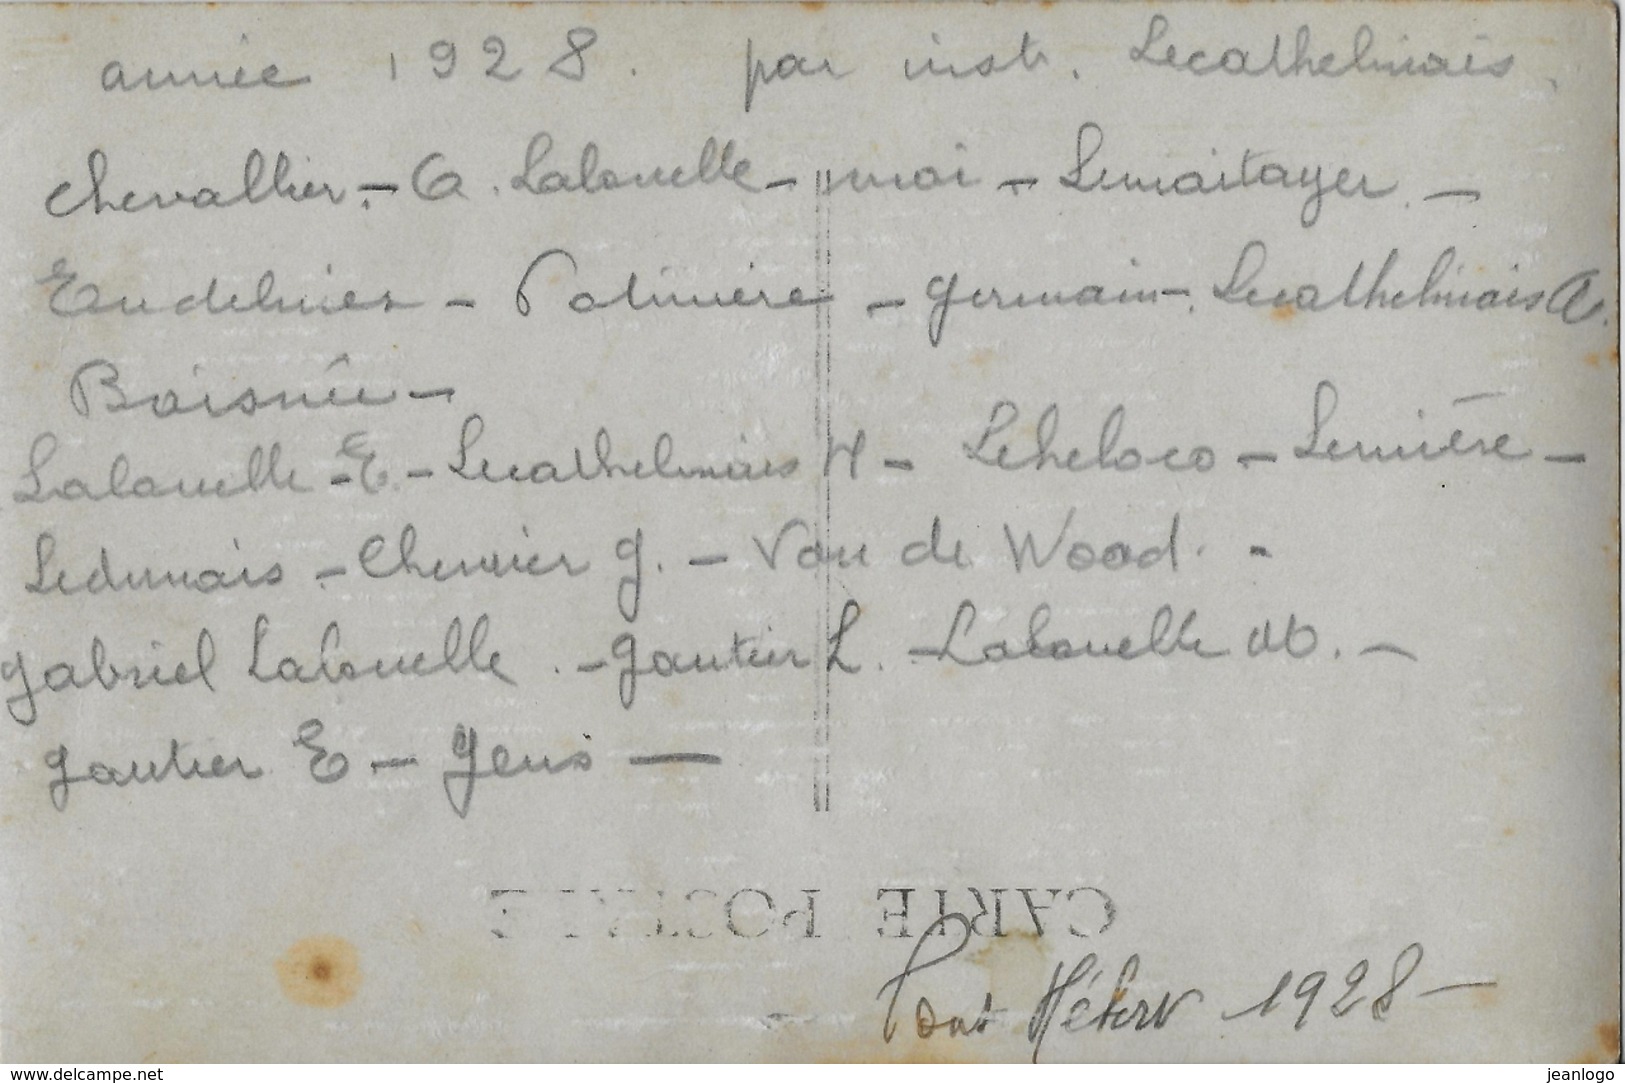 année 1928. par inst. Lecathelinais.
Chevallier. - G. Lalouelle - moi - Lemaitayer. -
Eudelines - Potinière - Germain - Lecathelinais A.
Boisnée -
Lalouelle E. - Lecathelinais H - Leheloco - Lemière -
Ledunois - Chennier G. - Van de Wood. -
Gabriel Lalouelle. - Gautier L. - Lalouelle M. -
Gautier E - Yens —
CARTE POSTALE
Pont Hébert 1928 -
www.delcampe.net
jeanlogo